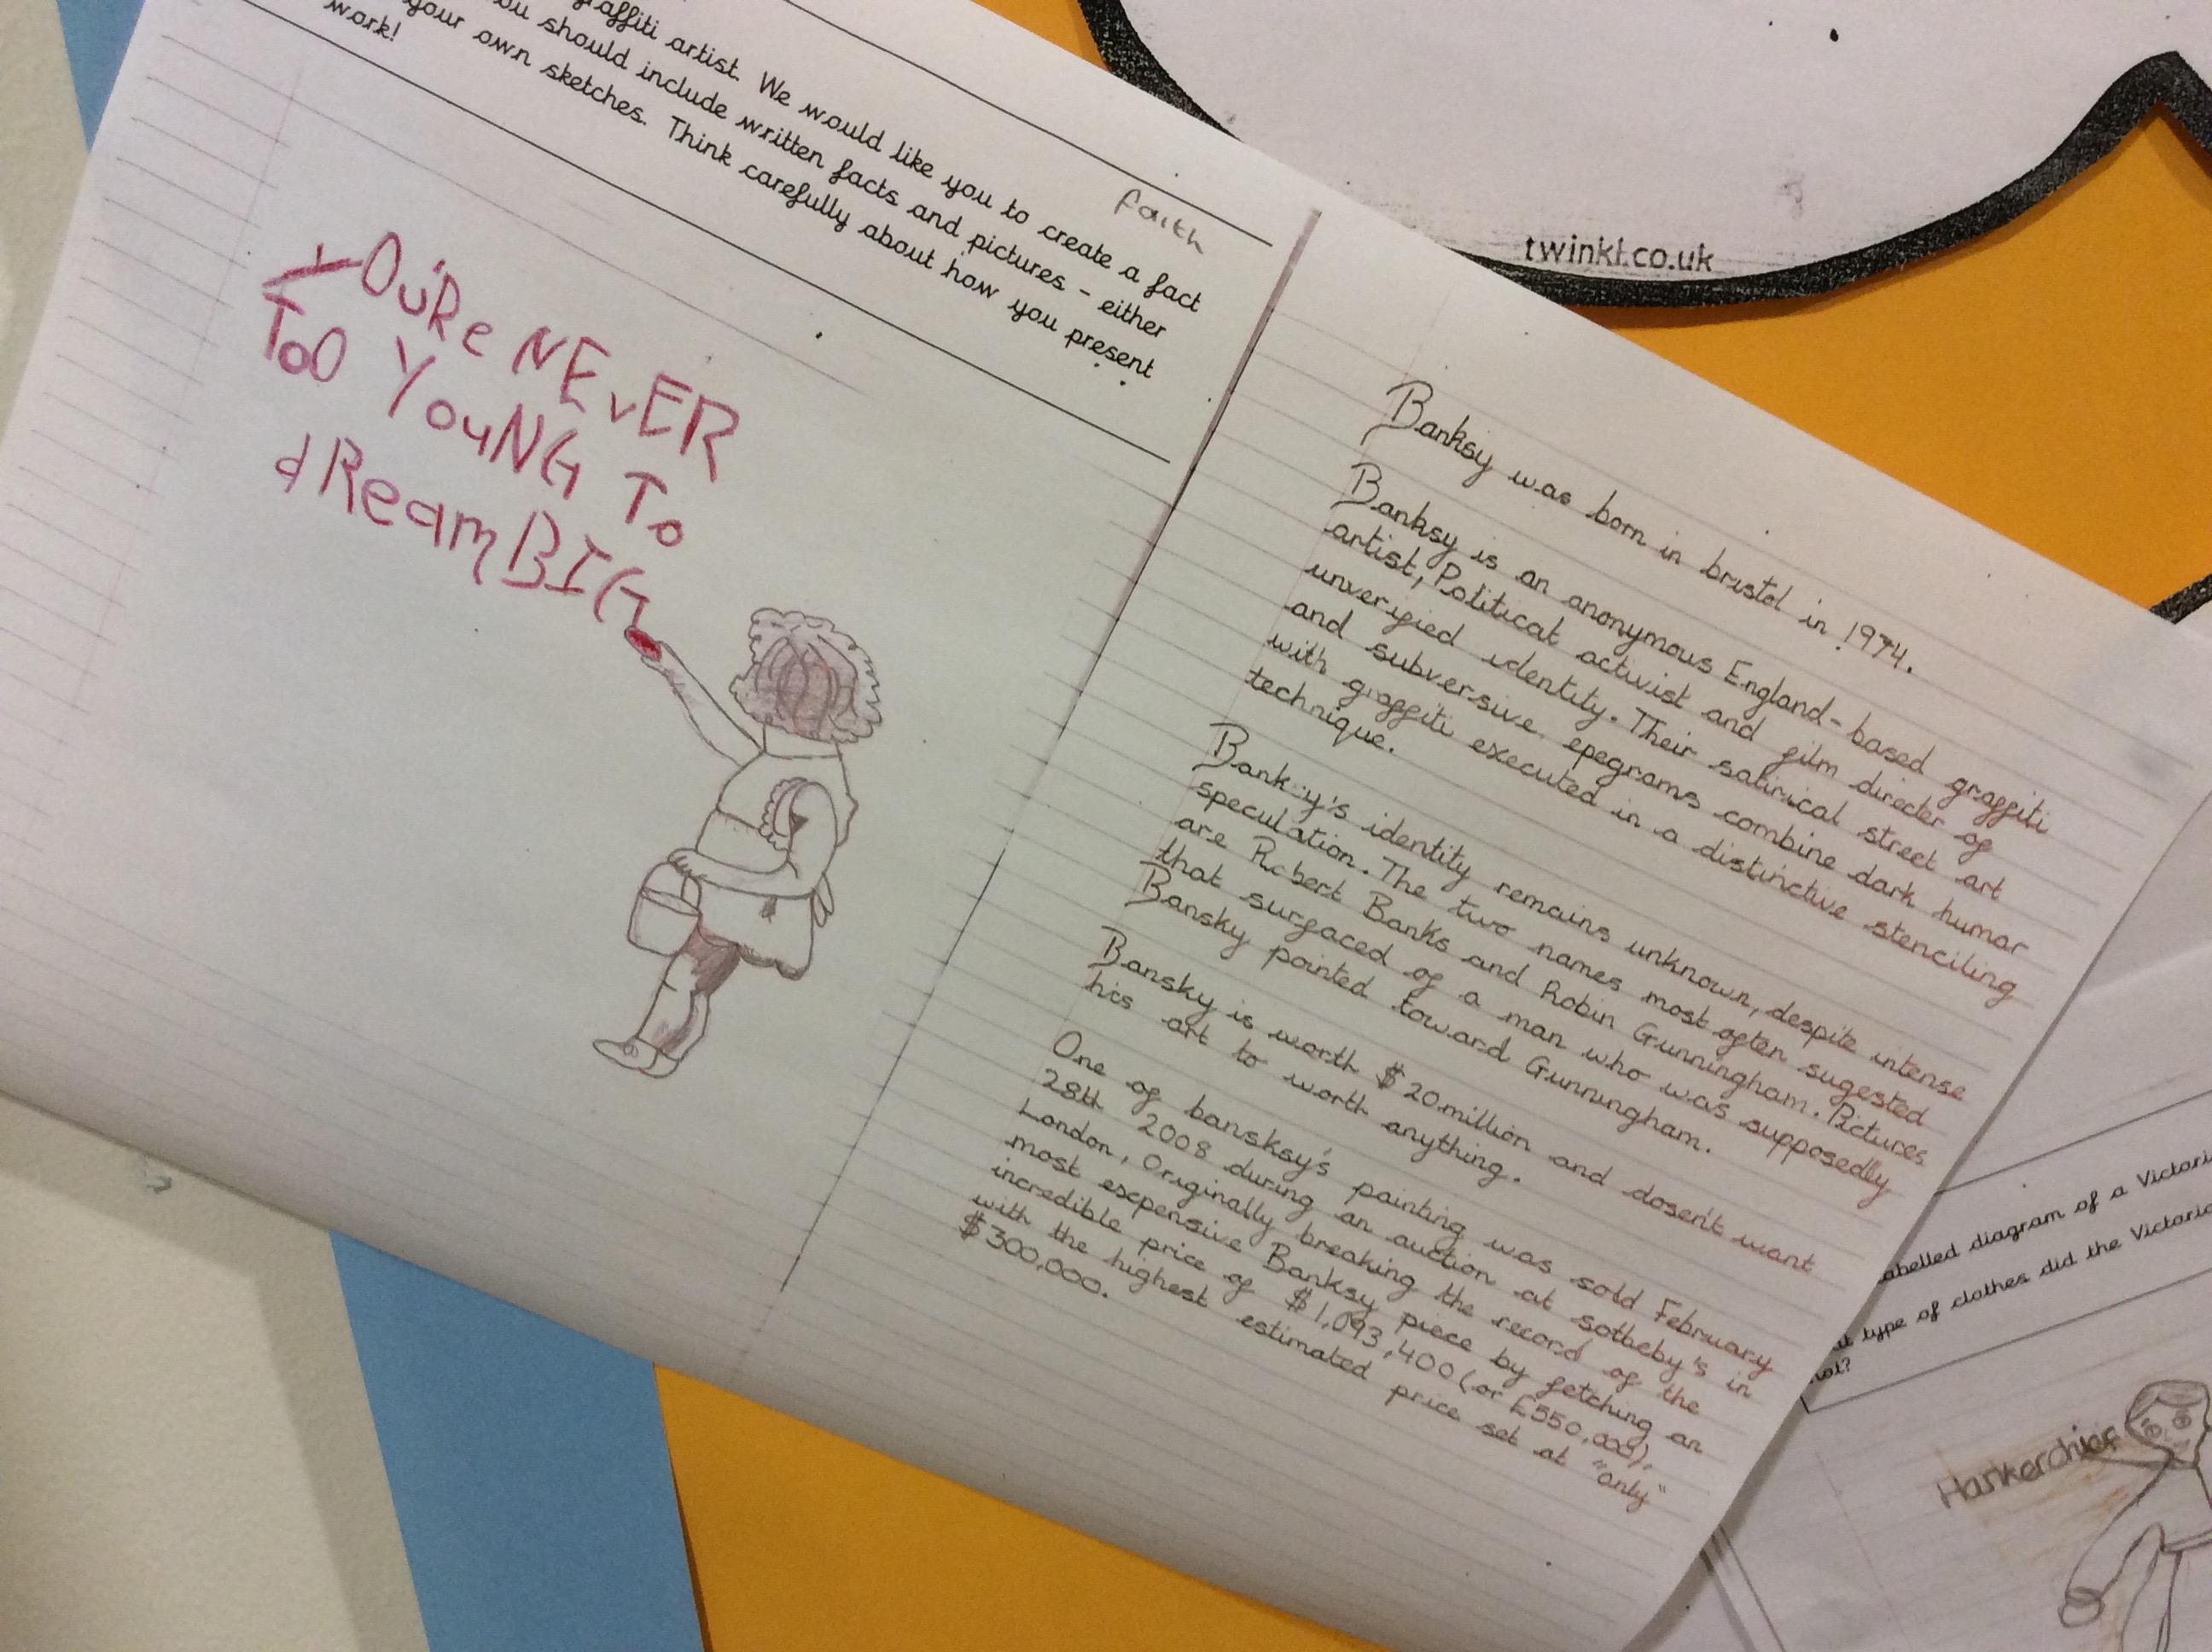 graffiti artist. We would like you to create a fact
you should include written facts and pictures - either
your own sketches. Think carefully about how you present
work!
faith
YOU'Re NEvER
Too YouNG To
dReam BIG
Banksy was born in bristol in 1974.
Banksy is an anonymous England-based graffiti
artist, Political activist and film directer of
unverified identity. Their satirical street art
and subversive epegrams combine dark humar
with graffiti executed in a distinctive stenciling
technique.
Banksy's identity remains unknown, despite intense
speculation. The two names most often sugested
are Robert Banks and Robin Gunningham. Pictures
that surfaced of a man who was supposedly
Bansky pointed toward Gunningham.
Bansky is worth $20million and dosen't want
his art to worth anything.
One of bansksy's painting was sold February
28th 2008 during an auction at sotbeby's in
London, Originally breaking the record of the
most esepensive Banksy piece by fetching an
incredible price of $1,093,400 (or £550,000),
with the highest estimated price set at "only"
$300,000.
twinkl.co.uk
abelled diagram of a Victori
type of clothes did the Victoria
not?
Hankerchief